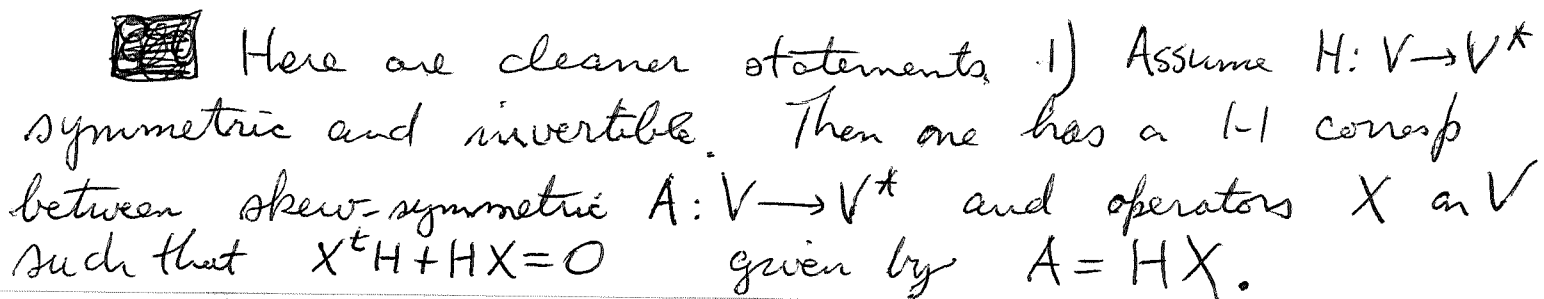 Here are cleaner statements. 1) Assume H: V→V*
symmetric and invertible. Then one has a 1-1 corresp
between skew-symmetric A: V→V* and operators X on V
such that XᵗH+HX=0 given by A = HX.